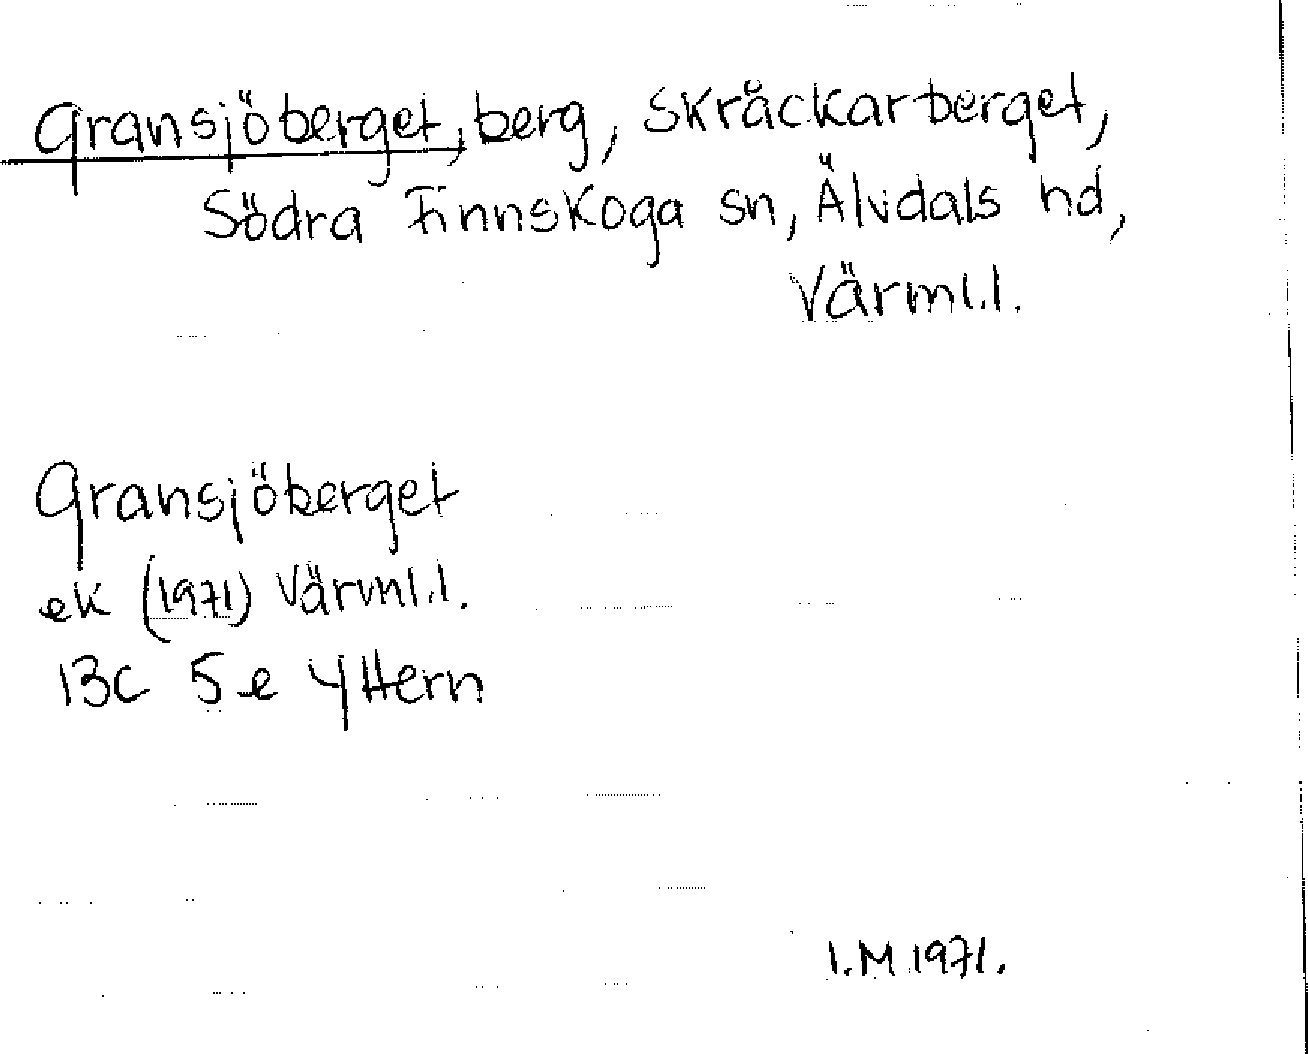 Gransjöberget, berg, Skråckarberget,
Södra Finnskoga sn, Älvdals hd,
Värml.l.
Gransjöberget
ek (1971) Värml.l.
13C 5e Yttern
I.M 1971.